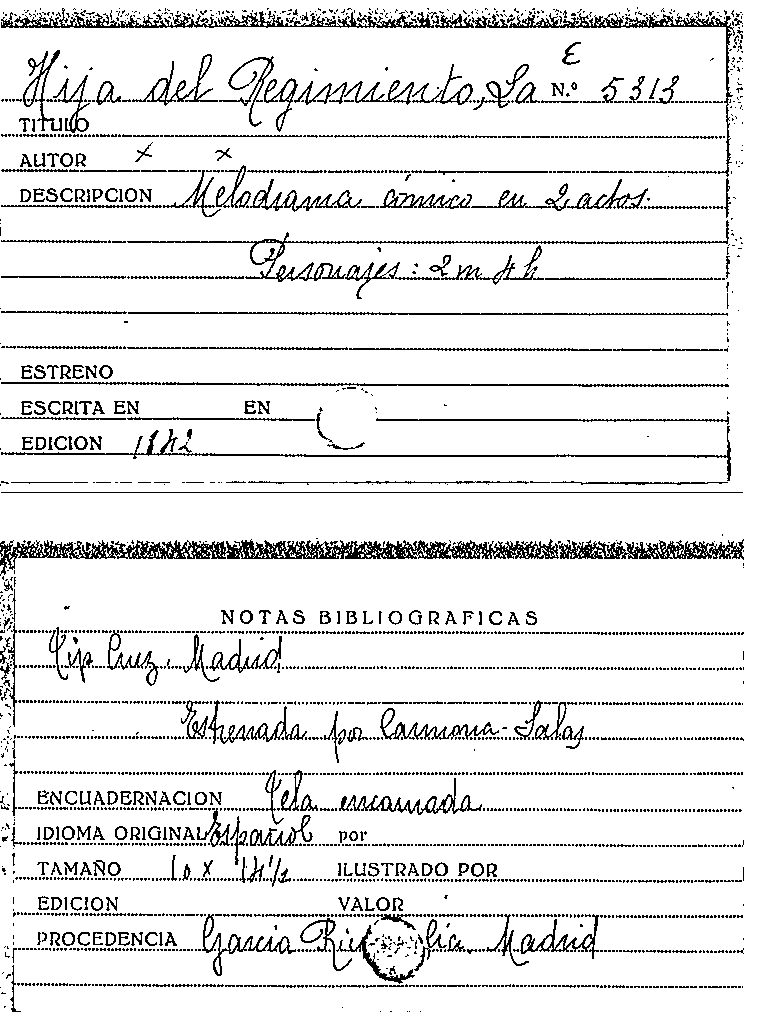 E
Hija del Regimiento, La N.º 5313
TITULO
AUTOR x x
DESCRIPCION Melodrama cómico en 2 actos.
Personajes: 2 m 4 h
ESTRENO
ESCRITA EN EN
EDICION 1842
NOTAS BIBLIOGRAFICAS
Tip Cruz. Madrid
Estrenada por Carmona-Salas
ENCUADERNACION Tela encarnada
IDIOMA ORIGINAL Español por
TAMAÑO 10 x 14 1/2 ILUSTRADO POR
EDICION VALOR
PROCEDENCIA García Madrid